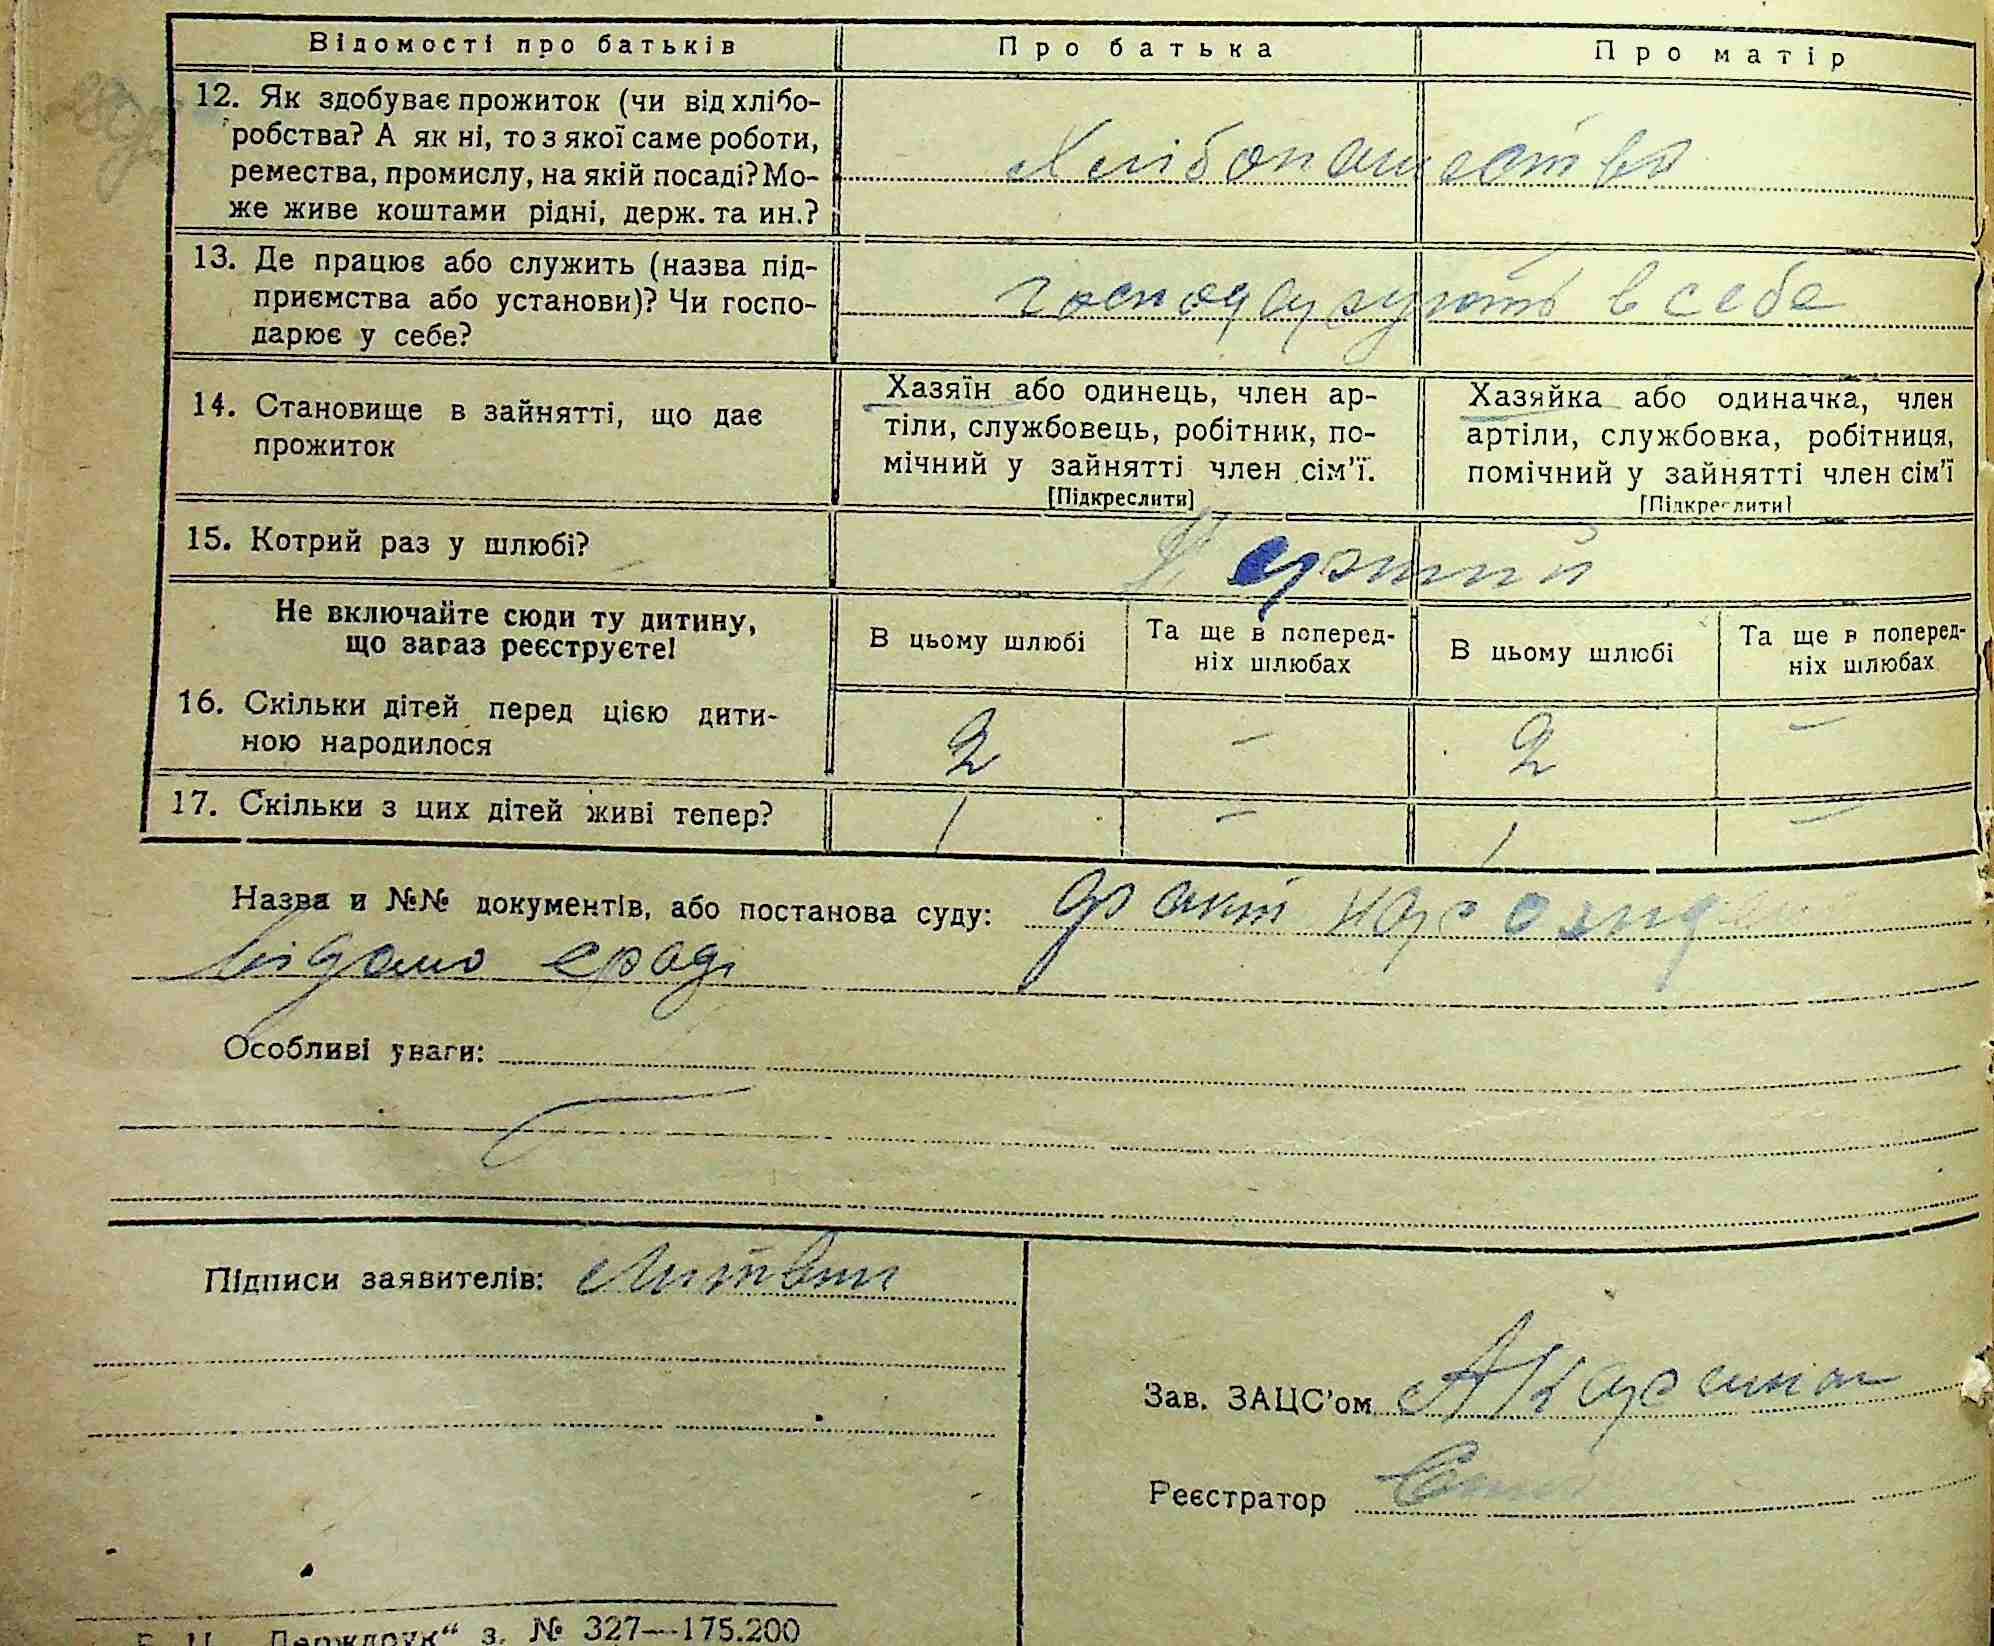 Відомості про батьків Про батька Про матір
12. Як здобуває прожиток (чи від хлібо-
робства? А як ні, то з якої саме роботи,
ремества, промислу, на якій посаді? Мо-
же живе коштами рідні, держ. та ин.?
Хлібопашество
13. Де працює або служить (назва під-
приємства або установи)? Чи госпо-
дарює у себе?
господарують в себе
14. Становище в зайнятті, що дає
прожиток
Хазяїн або одинець, член ар-
тіли, службовець, робітник, по-
мічний у зайнятті член сім'ї.
[Підкреслити]
Хазяйка або одиначка, член
артіли, службовка, робітниця,
помічний у зайнятті член сім'ї
[Підкреслити]
15. Котрий раз у шлюбі?
Перший
Не включайте сюди ту дитину,
що зараз реєструєте!
В цьому шлюбі
Та ще в поперед-
ніх шлюбах
В цьому шлюбі
Та ще в поперед-
ніх шлюбах
16. Скільки дітей перед цією дити-
ною народилося
2 – 2 –
17. Скільки з цих дітей живі тепер? 1 – 1 –
Назва и №№ документів, або постанова суду: факт
відомо
Особливі уваги:
Підписи заявителів: Литвин
Зав. ЗАЦС'ом
Реєстратор
„Держдрук“ з. № 327—175.200